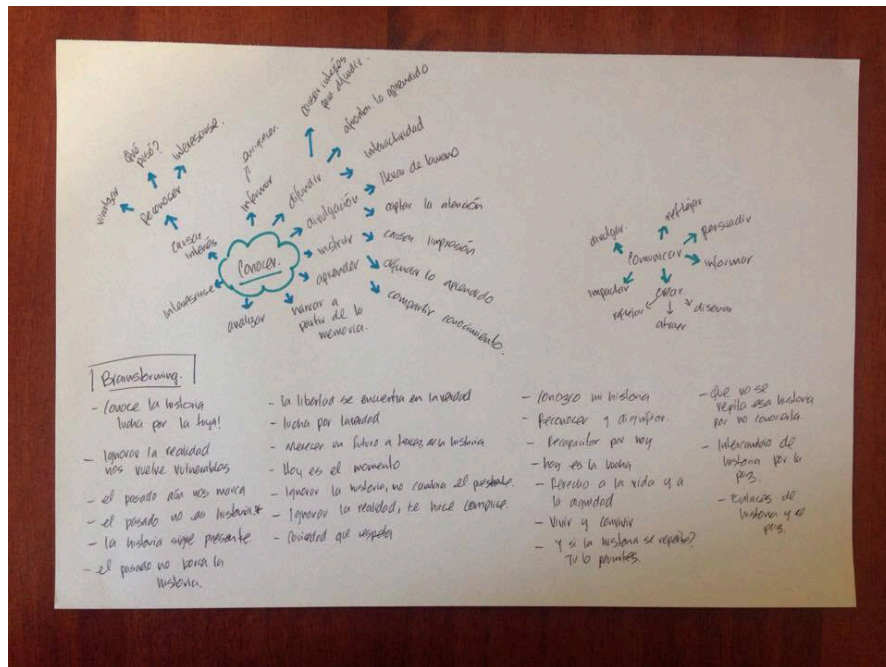 causar interés
para difundir
afrontar lo aprendido
Qué
pasó?
interesarse.
divulgar
Reconocer
causar
interés
informar
difundir
interactividad
divulgación
llevar de la mano
captar la atención
instruir
causar impresión
Conocer.
aprender
difundir lo aprendido
interesarse
compartir conocimiento.
analizar
narrar a
partir de la
memoria.
reflejar
divulgar.
persuadir
Comunicar
informar
impactar
crear
reflejar
diseñar
atraer
Brainstorming.
- Conoce la historia
lucha por la tuya!
- Ignorar la realidad
nos vuelve vulnerables
- el pasado aún nos marca
- el pasado no es historia*
- la historia sigue presente
- el pasado no borra la
historia.
- la libertad se encuentra en la verdad
- lucha por la verdad
- Merecer un futuro a través de la historia
- Hoy es el momento
- Ignorar la historia, no cambia el presente.
- Ignorar la realidad, te hace complice.
- Sociedad que respeta
- Conozco mi historia
- Reconocer y dignificar.
- Recapacitar por hoy
- hoy es la lucha
- Derecho a la vida y a
la dignidad
- Vivir y convivir
- Y si la historia se repite?
Tu lo permites.
- Que no se
repita esa historia
por no conocerla.
- Intercambio de
historia por la
paz.
- Enlaces de
historia y de
paz.